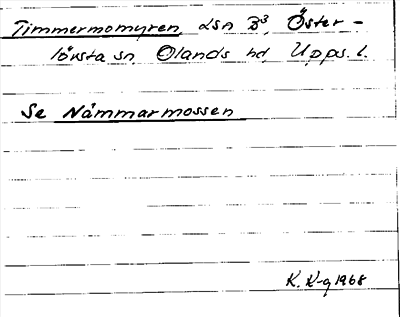 Timmermomyren, lsn B³, Öster-
lövsta sn, Olands hd, Upps. l.
Se Nåmmarmossen
K. K-g 1968